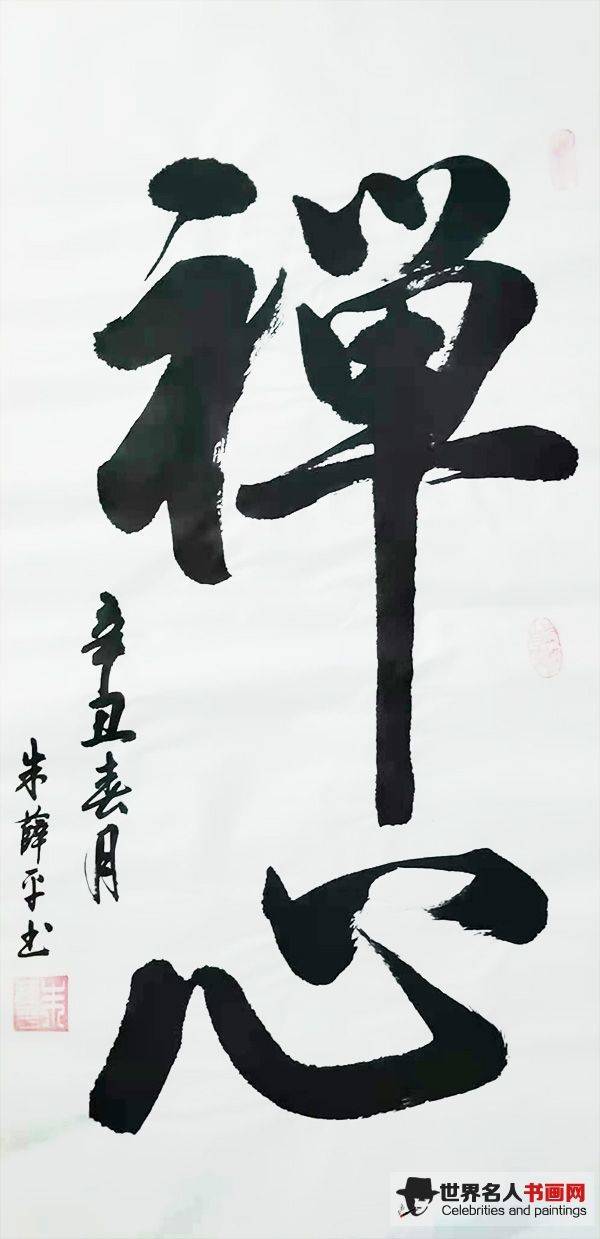 禅心
辛丑春月
朱薛平书
世界名人书画网
Celebrities and paintings